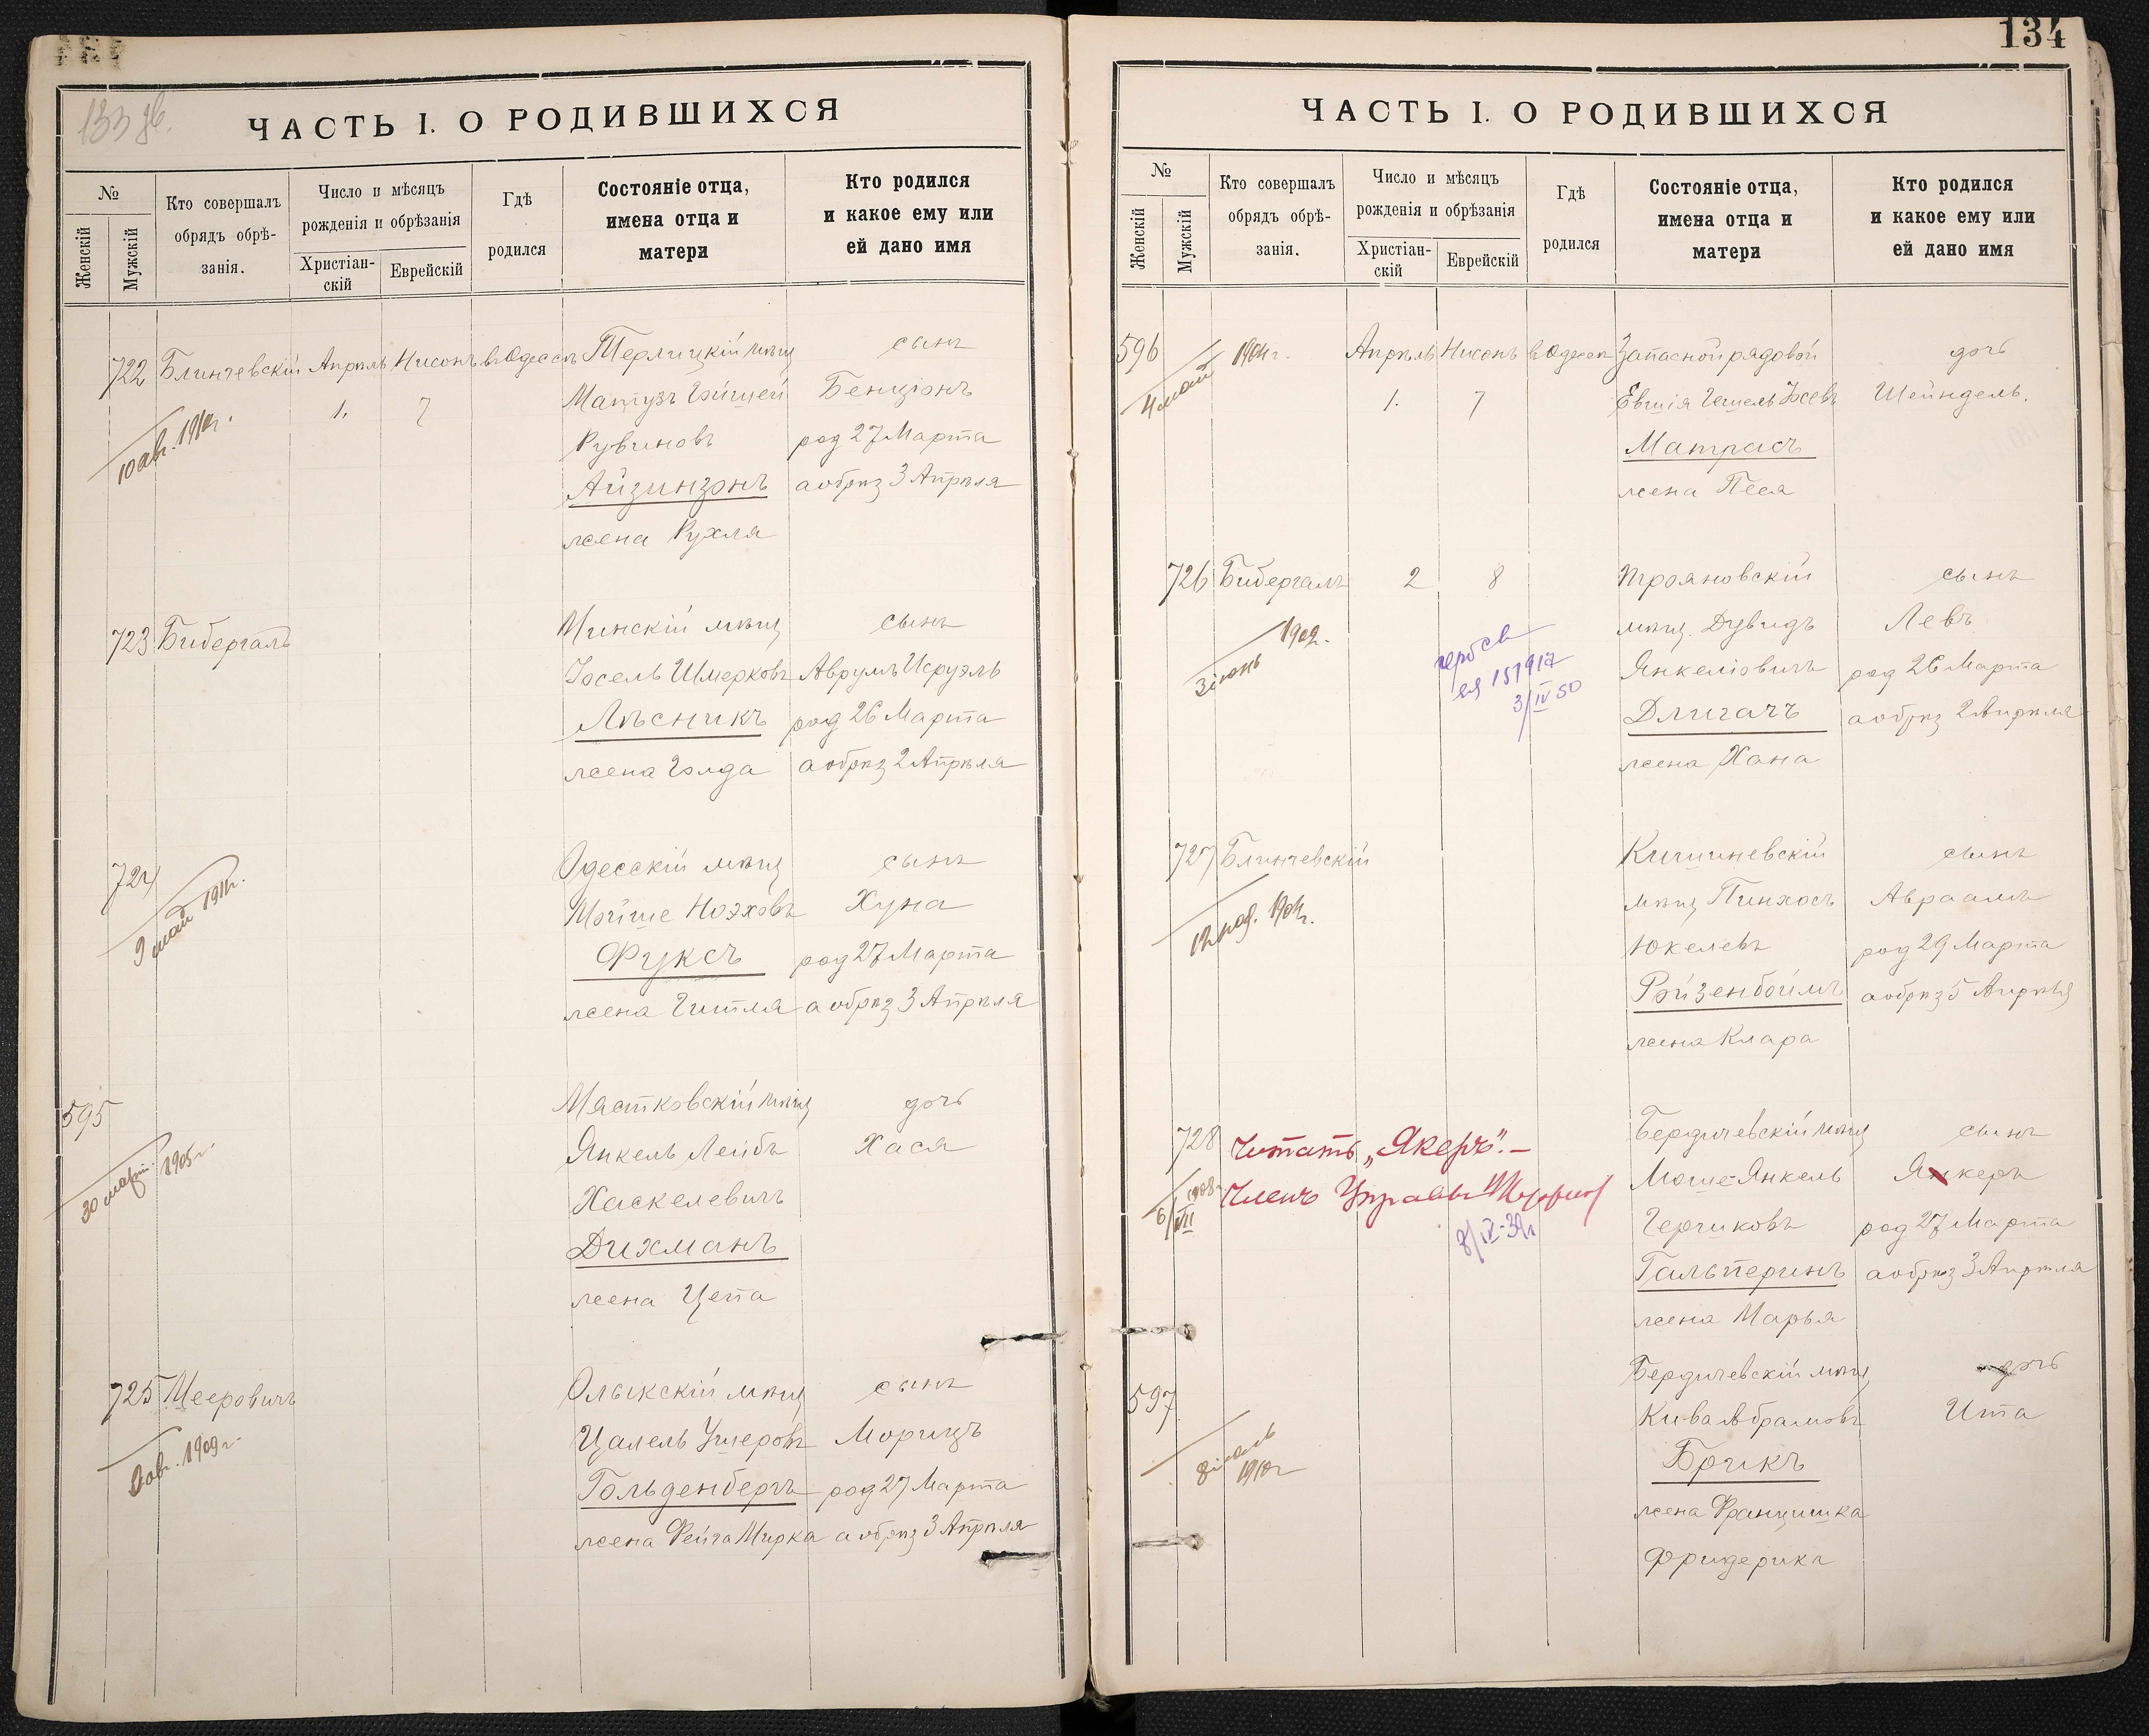 133 об.
ЧАСТЬ I. О РОДИВШИХСЯ
№
Женскій
Мужскій
Кто совершалъ
обрядъ обрѣ-
занія.
Число и мѣсяцъ
рожденія и обрѣзанія
Христіан-
скій
Еврейскій
Гдѣ
родился
Состояніе отца,
имена отца и
матери
Кто родился
и какое ему или
ей дано имя
722 Блинчевскій Апрѣль Нисонъ въ Одессѣ Терлицкій мѣщ сынъ
1. 7 Матузъ Гойшей Бенціонъ
10 авг. 1910г.
Рувиновъ род 27 Марта
Айзинзонъ а обрѣз 3 Апрѣля
жена Рухля
723 Бибергалъ Минскій мѣщ сынъ
Іосель Шмерковъ Аврумъ Исруэль
Лѣсникъ род 26 Марта
жена Голда а обрѣз 2 Апрѣля
724 Одесскій мѣщ сынъ
9 май 1911г.
Мойше Ноэховъ Хуна
Фуксъ род 27 Марта
жена Гитля а обрѣз 3 Апрѣля
595 Мястковскій мѣщ дочь
30 март. 1905г.
Янкель Лейбъ Хася
Хаскелевичъ
Дихманъ
жена Цепа
725 Мееровичъ Олыкскій мѣщ сынъ
авг. 1909г.
Цалель Ушеровъ Морицъ
Гольденбергъ род 27 Марта
жена Фейга Мирка а обрѣз 3 Апрѣля
134
ЧАСТЬ I. О РОДИВШИХСЯ
№
Женскій
Мужскій
Кто совершалъ
обрядъ обрѣ-
занія.
Число и мѣсяцъ
рожденія и обрѣзанія
Христіан-
скій
Еврейскій
Гдѣ
родился
Состояніе отца,
имена отца и
матери
Кто родился
и какое ему или
ей дано имя
596 Апрѣль Нисонъ въ Одессѣ Запасной рядовой дочь
4 май 1904г.
1. 7 Евшія Гешель Іосевъ Шейндель.
Матрасъ
жена Песя
726 Бибергалъ 2 8 Трояновскій сынъ
3 іюнь 1902.
мѣщ. Дувидъ Левъ
Янкеліовичъ род 26 Марта
151917
3/IV 50
Длигачъ а обрѣз 2 Апрѣля
жена Хана
727 Блинчевскій Кишиневскій сынъ
мѣщ Пинхосъ Авраамъ
Юкелевъ род 29 Марта
Ройзенбоймъ а обрѣз 5 Апрѣля
жена Клара
728 Читать „Якеръ“.– Бердичевскій мѣщ сынъ
6/VII 1908г.
Членъ Управы Моше-Янкель Якеръ
8/IV-39г
Герчиковъ род 27 Марта
Гальперинъ а обрѣз 3 Апрѣля
жена Марья
597 Бердичевскій мѣщ дочь
Кива Абрамовъ Ита
1910г
Брикъ
жена Францишка
Фридерика